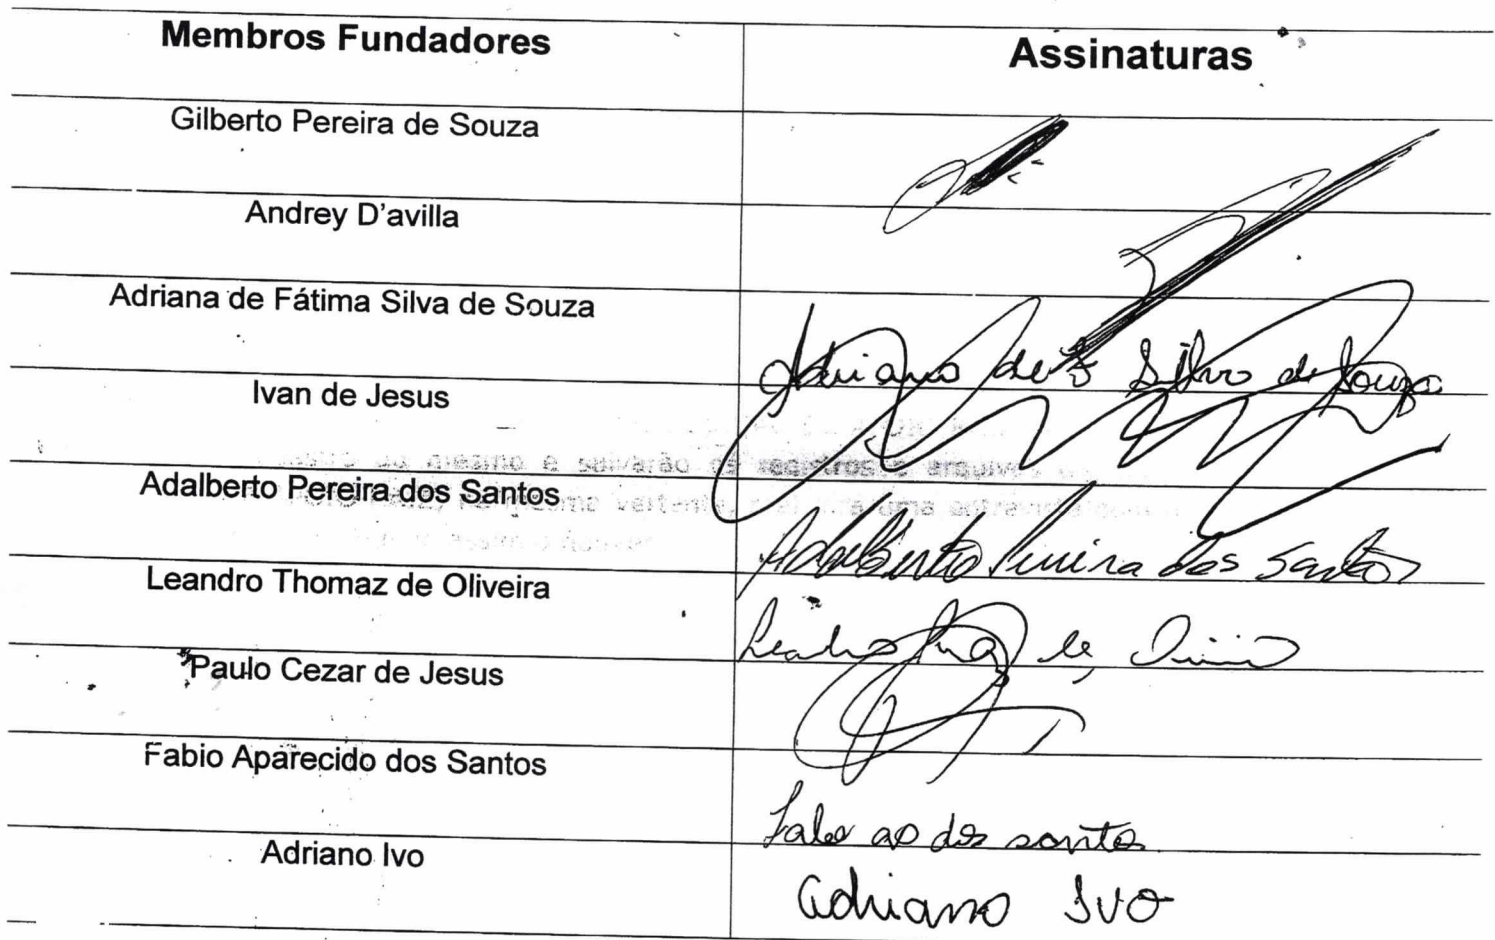 Membros Fundadores Assinaturas
Gilberto Pereira de Souza
Andrey D'avilla
Adriana de Fátima Silva de Souza
Adriana de F Silva de Souza
Ivan de Jesus
mesmo e registros e arquivos
Adalberto Pereira dos Santos
uma
Adalberto Pereira dos Santos
Leandro Thomaz de Oliveira
Leandro de
Paulo Cezar de Jesus
Fabio Aparecido dos Santos
Fabio Ap dos Santos
Adriano Ivo
Adriano Ivo